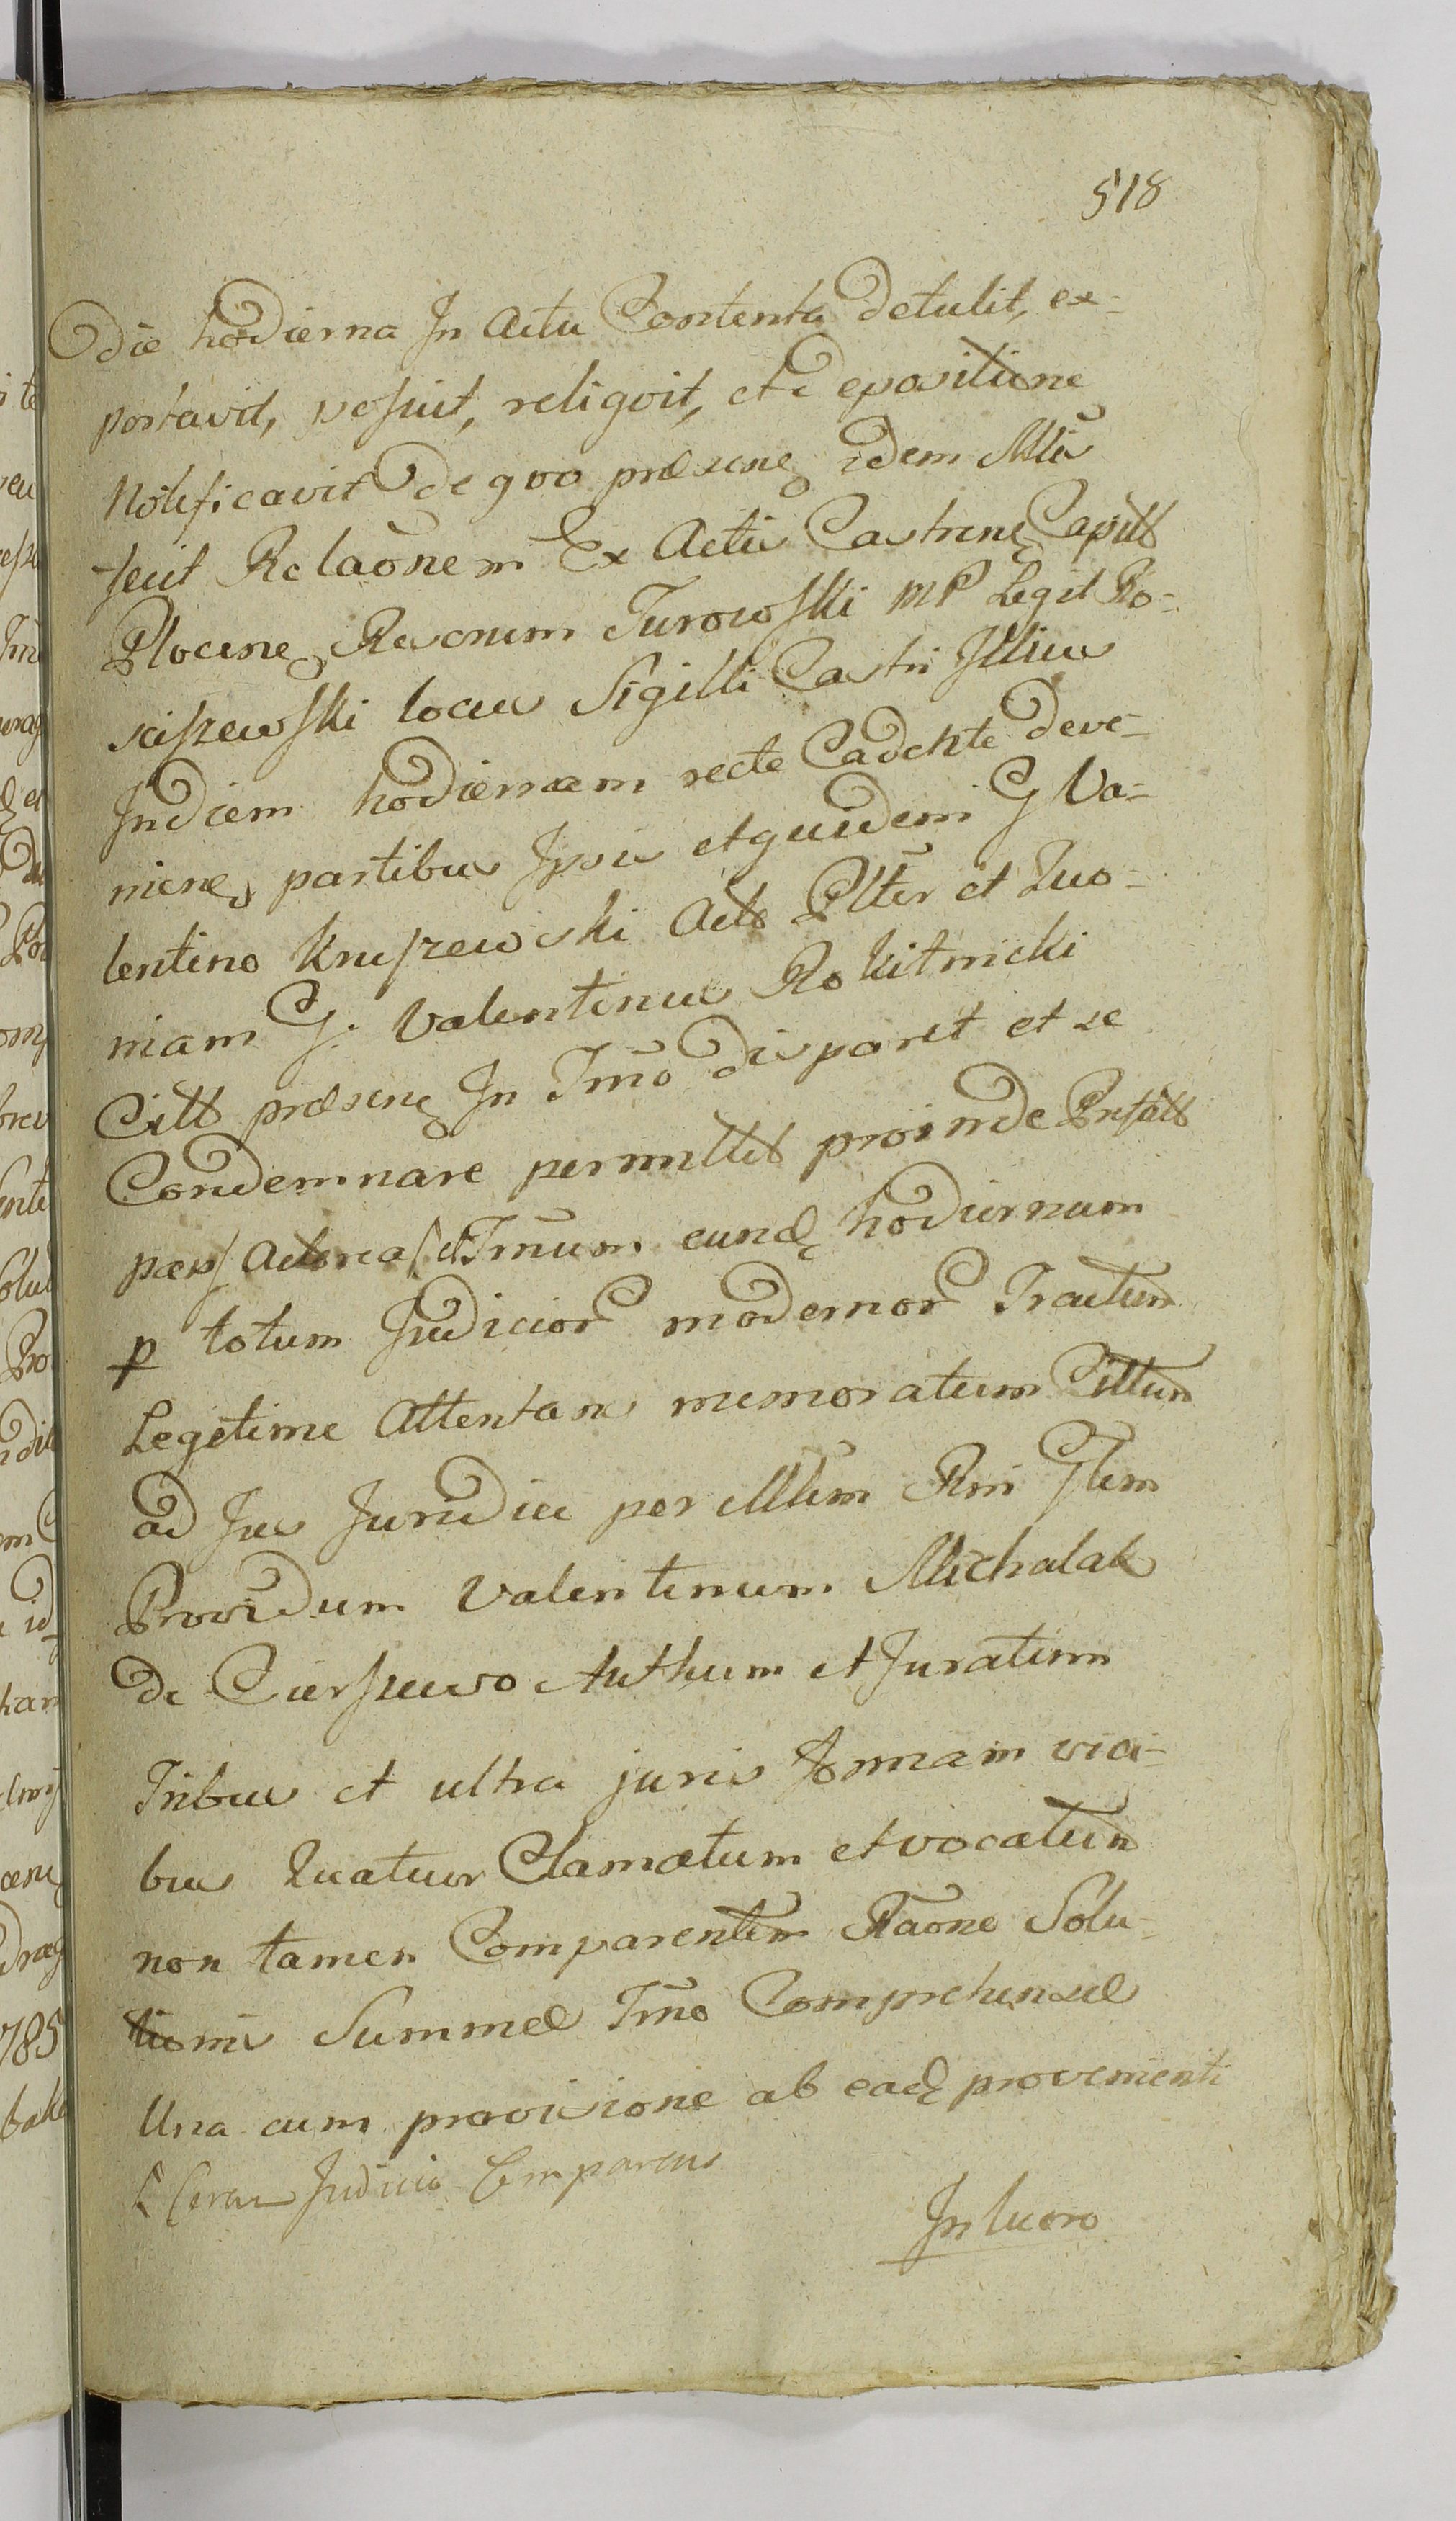 518
die hodierna In Actu Contenta detulit, ex-
portavit, posuit, reliqvit, et e expositione
Notificavit de qvo præsenꝫ idem Mlis
fecit Relaõnem Ex Actis Castrenꝫ Capitt
Plocenꝫ Rescriptum Turowski MP Legit Ro-
sciszewski locus Sigilli Castri Illius
In diem hodiernam recte Cadente deve-
nienꝫ partibus Ipsis et quidem G Va-
lentino Kruszewski Acto Plter et Quo-
niam G. Valentinus Rokitnicki
Citt præsenꝫ In Tmõ disparet et se
Condemnare permittit proinde Præfatt
pars Actorea Tmũm eundꝫ hodiernum
p totum Judicior modernor Tractum
Legitime Attentans memoratum Cittum
ad Jus Juridice per Mlem Rni Glem
Providum Valentinum Michalak
de Cierszewo Authum et Juratum
Tribus et ultra juris formam vici-
bus Quatuor Clamatum et vocatum
non tamen Comparentem Raõne Solu-
tionis Summæ Tmõ Comprehensæ
Una cum provisione ab eadꝫ provenienti
Coram Judicio Comparens
In lucro